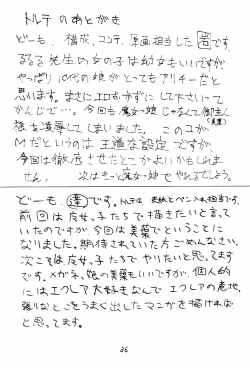 トルテのあとがき
どーも、構成、コンテ、原画担当した岩です。
るるる先生の女の子は幼女もいいですが
やっぱり10代の娘がとってもプリチーだと
思います。まさにエロおかずにして下さいって
かんじで…。今回も魔女っ娘じゃなくて
様を凌辱してしまいました。このコが
Mだというのは王道な設定ですが、
今回は徹底させたとこがよいかもしれま
せん。 次はきっと魔女っ娘でやれるでしょう。
どーも、達です。トルテは表紙とペン入れ担当です。
前回は魔女っ子たちで描きたいと言って
いたのですが今回は美葉でということに
なりました。期待されていた方ごめんなさい。
次こそは魔女っ子たちでやりたいと思ってます
です。メガネっ娘の美葉もいいですが、個人的
にはエクレア大好きなんでエクレアの意地
張りなとこをうまく出したマンガを描ければ
と思ってます。
36